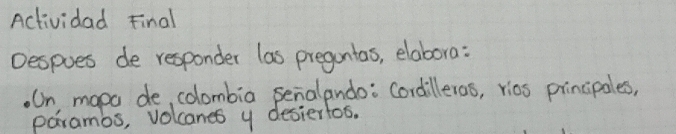 Actividad Final
Despues de responder las preguntas, elabora:
.Un mapa de colombia señalando: Cordilleras, rios principales,
páramos, volcanes y desiertos.